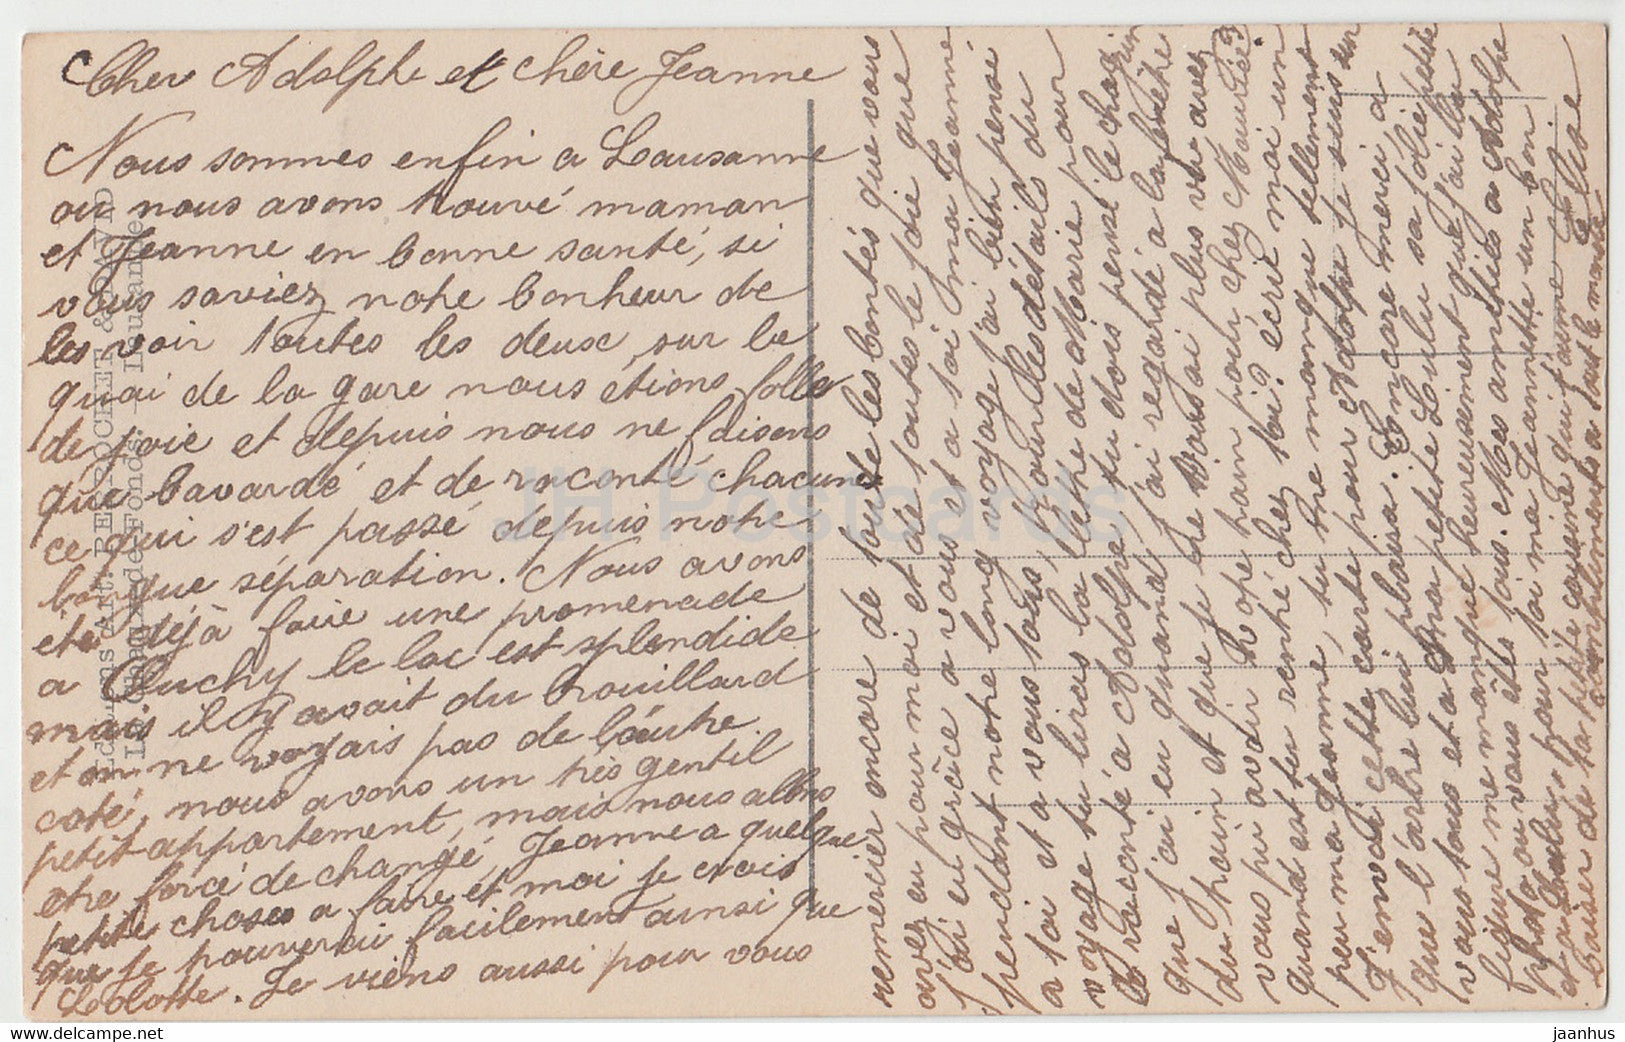 Cher Adolphe et chère Jeanne
Nous sommes enfin a Lausanne
ou nous avons trouvé maman
et Jeanne en bonne santé, si
vous saviez notre bonheur de
les voir toutes les deux, sur le
quai de la gare nous étions folles
de joie et depuis nous ne faisons
que bavardé et de raconté chacune
ce qui s'est passé depuis notre
longue séparation. Nous avons
été déjà faire une promenade
a Ouchy le lac est splendide
mais il y avait du brouillard
et on ne voyais pas de l'autre
coté, nous avons un très gentil
petit appartement, mais nous allons
être forcé de changé, Jeanne a quelque
petite choses a faire et moi je crois
que je pouverai facilement ainsi que
Lolotte. Je viens aussi pour vous
remercier encore de tout les bontés que vous
avez eu pour moi et de toutes le joie que
j'ai eu grâce a vous et a toi ma Jeanne
pendant notre long voyage j'ai bien pensé
a toi et a vous tous, pour les détails du
voyage tu liras la lettre de Marie pour
raconté a Adolphe, tu dois pensé le chagrin
que j'ai eu quand j'ai regardé a la fenêtre
du train et que je ne vous ai plus vue avez
vous pu avoir votre train pour chez Maurice?
quand est tu rentré chez toi? écrit moi un
peu ma Jeanne, tu me manque tellement
J'envoi cette carte pour Adolphe je suis sur
que l'arbre lui plaira. Encore merci a
vous tous et a ma petite Lulu sa jolie petite
figure me manque heureusement que j'ai la
photo ou vous êtes tous. Mes amitiés a Adolphe
et pour toi ma Jeannette un bon
baiser de ta petite cousine qui t'aime Elise
Compliments a tout le monde
Editions Art. PERROCHET & DAVID
La Chaux-de-Fonds. - Lausanne.
JH Postcards
www.delcampe.net
jaanhus